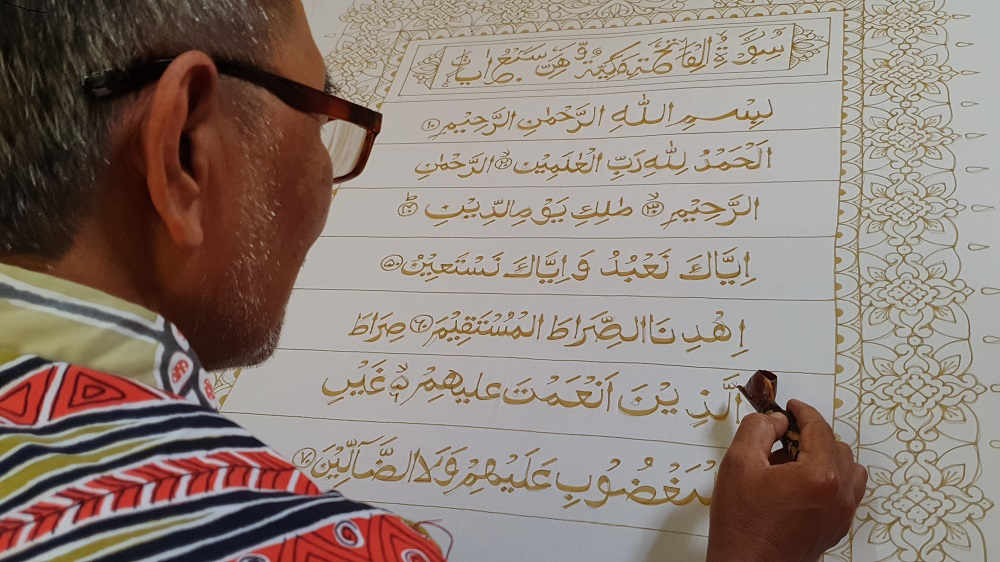 سُوْرَةُ الْفَاتِحَةِ مَكِّيَّةٌ وَّهِيَ سَبْعُ اٰيَاتٍ
بِسْمِ اللّٰهِ الرَّحْمٰنِ الرَّحِيْمِ ١
اَلْحَمْدُ لِلّٰهِ رَبِّ الْعٰلَمِيْنَ ٢ الرَّحْمٰنِ
الرَّحِيْمِ ٣ مٰلِكِ يَوْمِ الدِّيْنِ ٤
اِيَّاكَ نَعْبُدُ وَاِيَّاكَ نَسْتَعِيْنُ ٥
اِهْدِنَا الصِّرَاطَ الْمُسْتَقِيْمَ ٦ صِرَاطَ
الَّذِيْنَ اَنْعَمْتَ عَلَيْهِمْ ە غَيْرِ
مَغْضُوْبِ عَلَيْهِمْ وَلَا الضَّآلِّيْنَ ٧